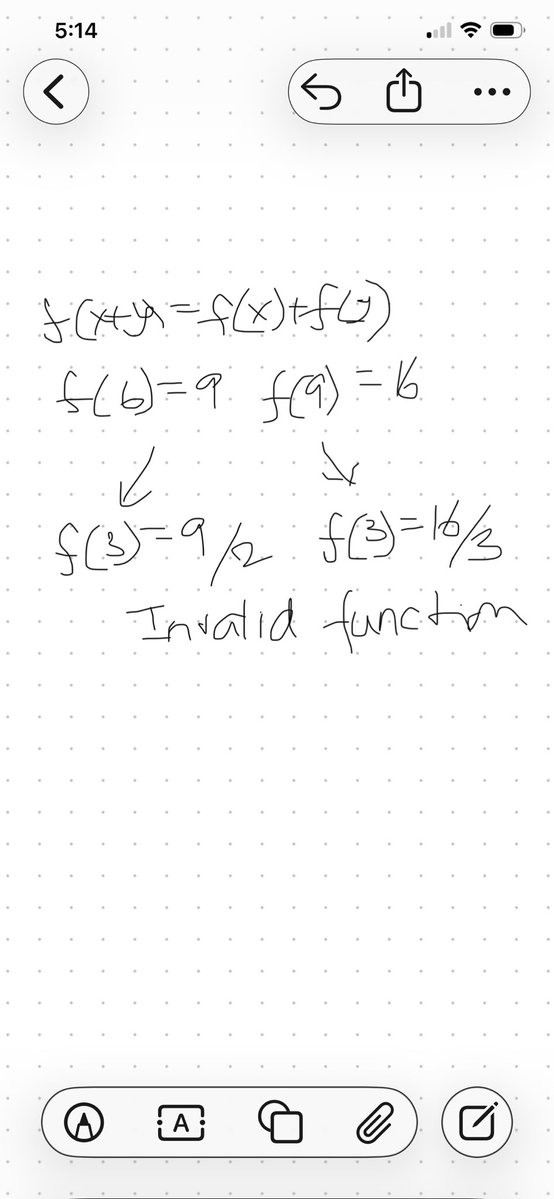 5:14
f(x+y)=f(x)+f(y)
f(6)=9 f(9)=16
f(3)=9/2 f(3)=16/3
Invalid function
A